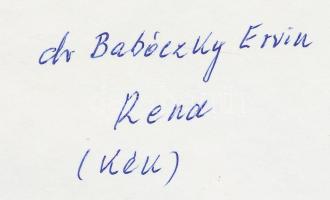 dr Babóczky Ervin
Rend
(Kék)